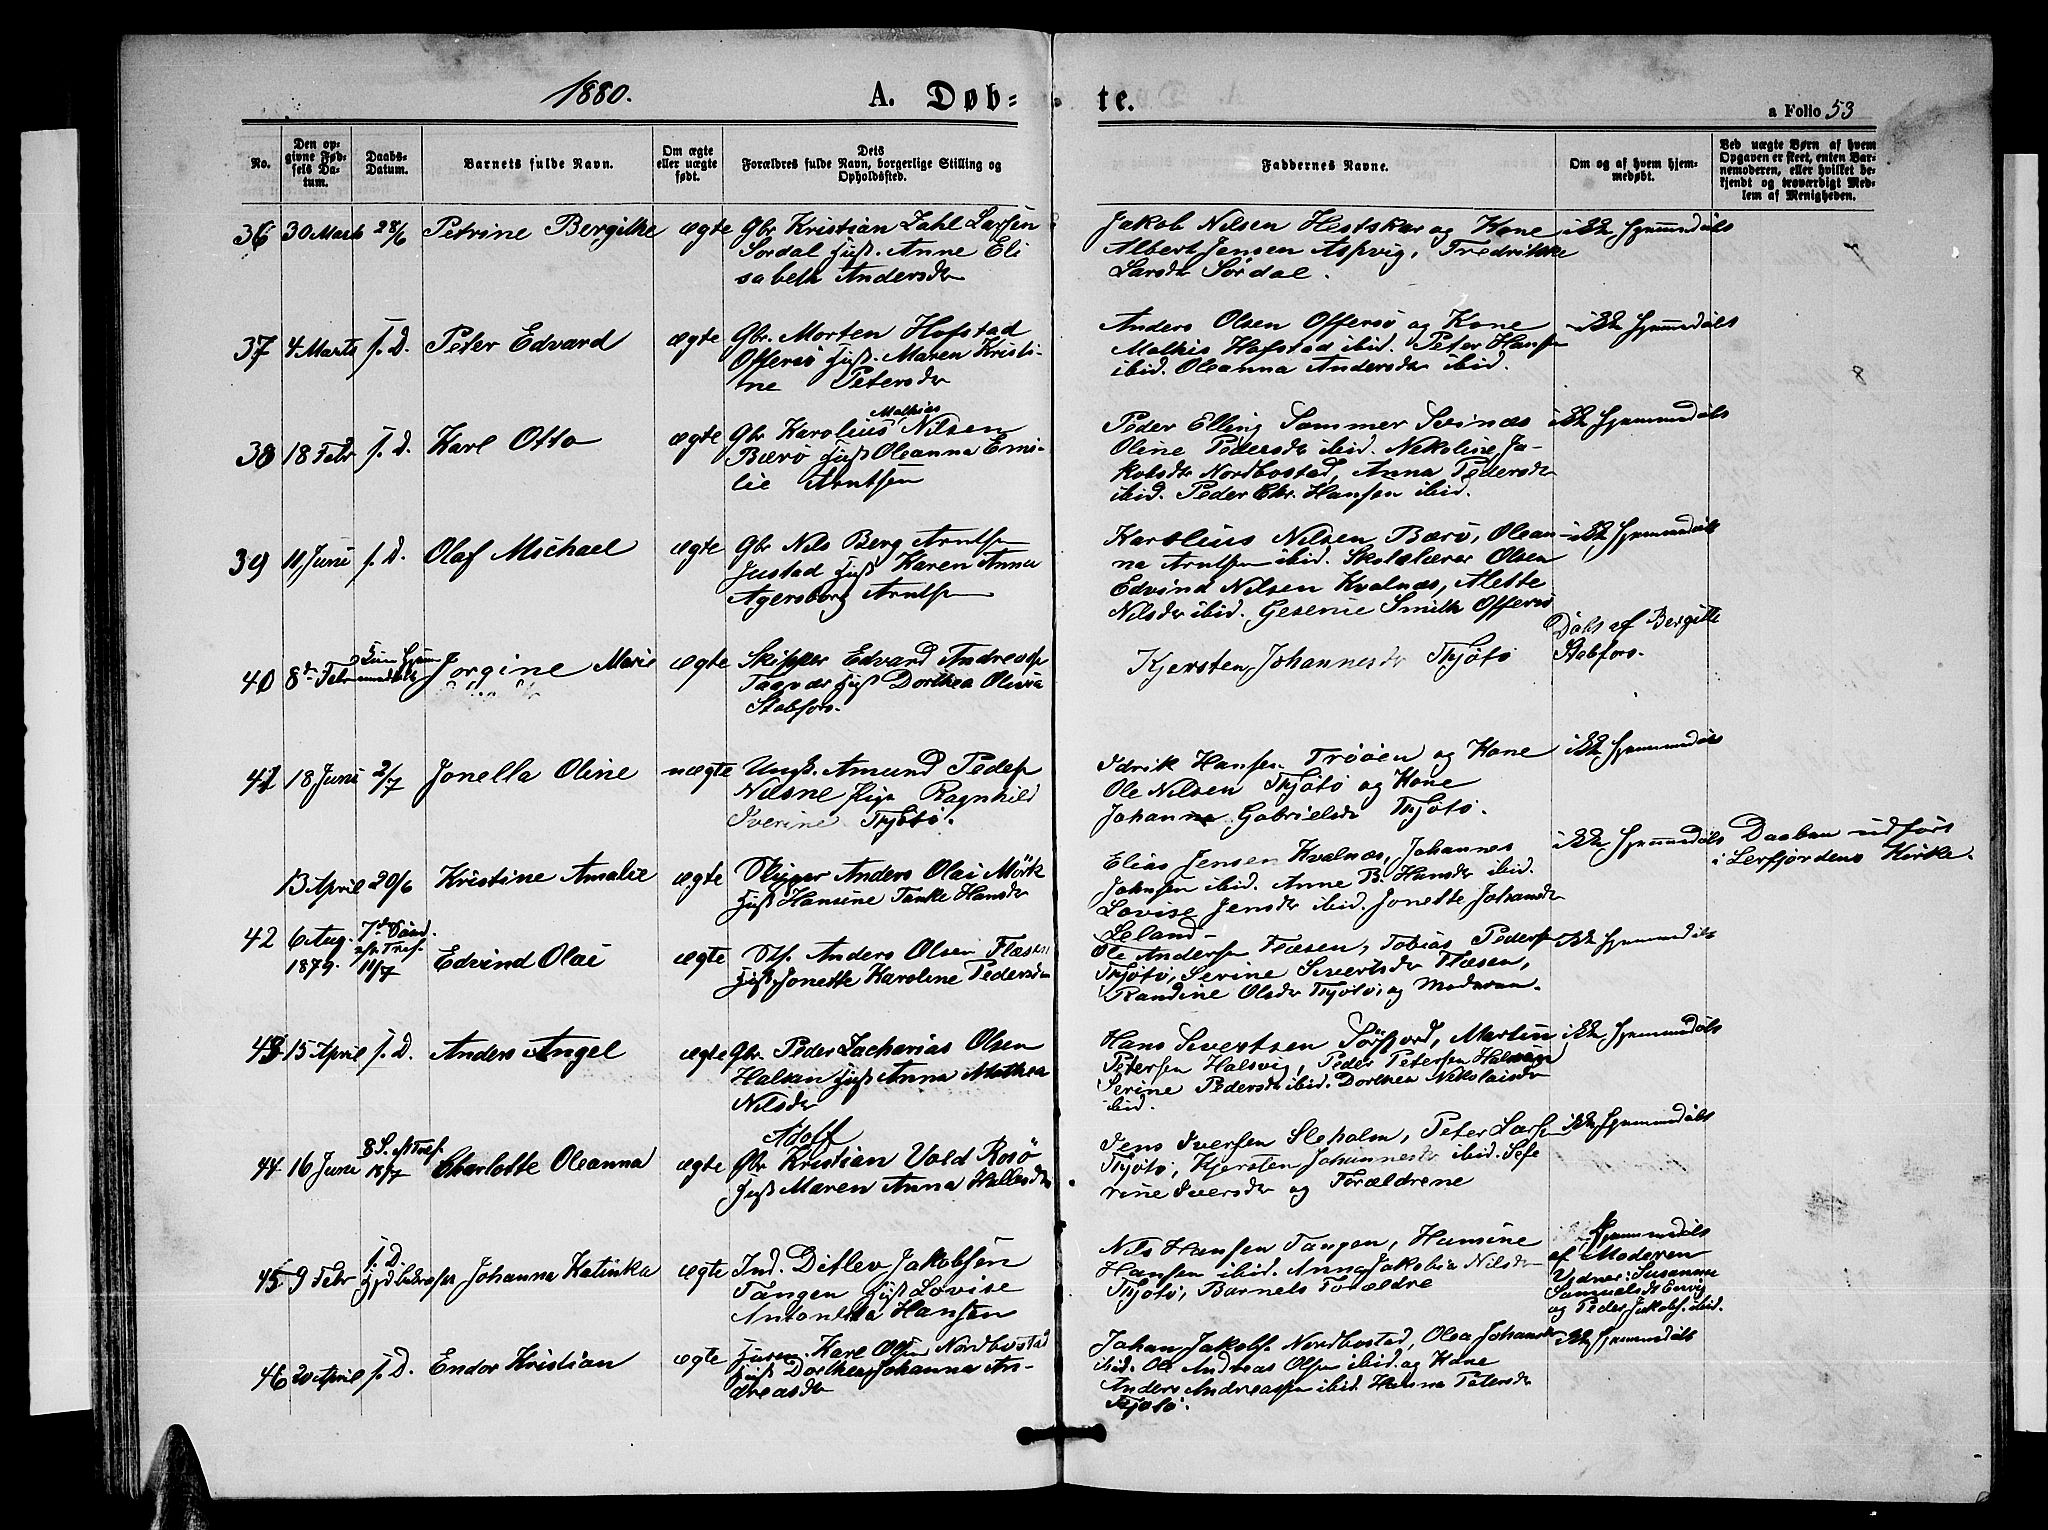 1880.
A. Døb-
te.
a Folio 53
No.
Den op-
givne Fød-
sels Da-
tum.
Daabs-
Datum.
Barnets fulde Navn.
Om ægte
eller uægte
født.
Dets
Forældres fulde Navn, borgerlige Stilling og
Opholdssted.
Faddernes Navne.
Om og af hvem hjem-
medøbt.
Ved uægte Børn af hvem
Opgaven er skeet, enten Bar-
nemoderen, eller hvilket be-
kjendt og troværdigt Med-
lem af Menigheden.
36 30 Marts 28/6 Petrine Bergithe ægte Gbr Kristian Zahl Larsen
Sørdal Hust. Anne Eli
sabeth Andersdr
Jakob Nilsen Hestskar og Kone
Albert Jensen Aspvig, Fredrikke
Larsdr Sørdal.
ikke hjemmedøbt
37 4 Marts s. D. Peter Edvard ægte Gbr. Morten Hofstad
Offersø Hust. Maren Kristi-
ne Petersdr
Anders Olsen Offersø og Kone
Mathis Hofstad ibid. Peter Hansn
ibid. Oleanna Andersdr ibid.
ikke hjemmedøbt
38 18 Febr s. D. Karl Otto ægte Gbr Karolius Mathias Nilsen
Bærø Hust Oleanna Emi-
lie Arntsen
Peder Elling Sommer Svinæs
Oline Pedersdr ibid. Nikoline Ja-
kobsdr Nordbostad, Anna Pedersdr
ibid. Peder Chr. Hansen ibid.
ikke hjemmedøbt
39 11 Juni s. D. Olaf Michael ægte Gbr Nils Berg Arntsn
Justad Hust Karen Anna
Agersborg Arntsn
Karolius Nilsen Bærø, Olean-
na Arntsen ibid. Skolelærer Olsen
Edvind Nilsen Kvalnæs, Alette
Nilsdr ibid. Gesenie Smith Offersø
ikke hjemmedøbt
40 8de Febr Jorgine Marie ægte Skipper Edvard Andreasn
Hust Dorthea Olivia
Stabfors.
Kjersten Johannesdr Thjøtø
Døbt af Bergitte
Stabfors.
41 18 Juni 2/7 Jonella Oline uægte Ungk. Amund Pedersn
Pige Ragnhild
Iverine Thjøtø.
Idrik Hansen Trøøen og Kone
Ole Nilsen Thjøtø og Kone
Johanna Gabrielsdr Thjøtø.
ikke hjemmedøbt
13 April 20/6 Kristine Amalie ægte Anders Olai Mörk
Hust Hansine Tanke Hansdr
Elias Jensen Kvalnæs, Johannes
Johnsen ibid. Anne B. Hansdr ibid.
Lovise Jensdr ibid. Jonette Johansdr
Leland-
ikke hjemmedøbt
Daaben udført
i Leirfjordens Kirke.
42 6 Aug.
1879.
7de Sønd.
e/r Tref.
11/7
Edvind Olai ægte Anders Olsen Flæsen
Hust Jonette Karoline Pedersdr
Ole Andersn Flæsen, Tobias Pedersn
Thjøtø, Serine Sivertsdr Flæsen,
Randine Olsdr Thjøtø, og Moderen.
ikke hjemmedøbt
43 15 April s. D. Anders Angel ægte Gbr. Peder Zacharias Olsen
Halsan Hust Anna Mathea
Nilsdr
Hans Sivertsen Sørfjord, Martin
Petersen Halsvig, Peder Petersen
Serine Pedersdr ibid. Dorthea Nikolaisdr
ibid.
ikke hjemmedøbt
44 16 Juni 8 S. e/r Tref.
18/7
Charlotte Oleanna ægte Gbr Kristian Adolf Vold Rosø
Hust Maren Anna
Jens Iversen Sleholm, Peter Larsen
Thjøtø, Kjersten Johannesdr ibid. Seve
rine Iversdr og Forældrene
ikke hjemmedøbt
45 9 Febr s. D.
Johanna Katinka ægte Ind. Ditlev Jakobsen
Tangen Hust Lovise
Antonetta Hansen
Nils Hansen Tangen, Hansine
Hansen ibid. Anna Jakobia Nilsdr
Thjøtø, Barnets Forældre
hjemmedøbt
af Moderen
Vidner: Susanna
Samuelsdr
og Peder Jakobs. ibid.
46 20 April s. D. Endor Kristian ægte Husm. Karl Olsn Nordbostad
Hust Dorthea Johanna An-
dreasdr
Johan Jakobs. Nordbostad, Olea Johansdr
ibid. Ole Andreas Olsn ibid. og Kone
Anders Andreassn ibid. Hanna Petersdr
Thjøtø.
ikke hjemmedøbt